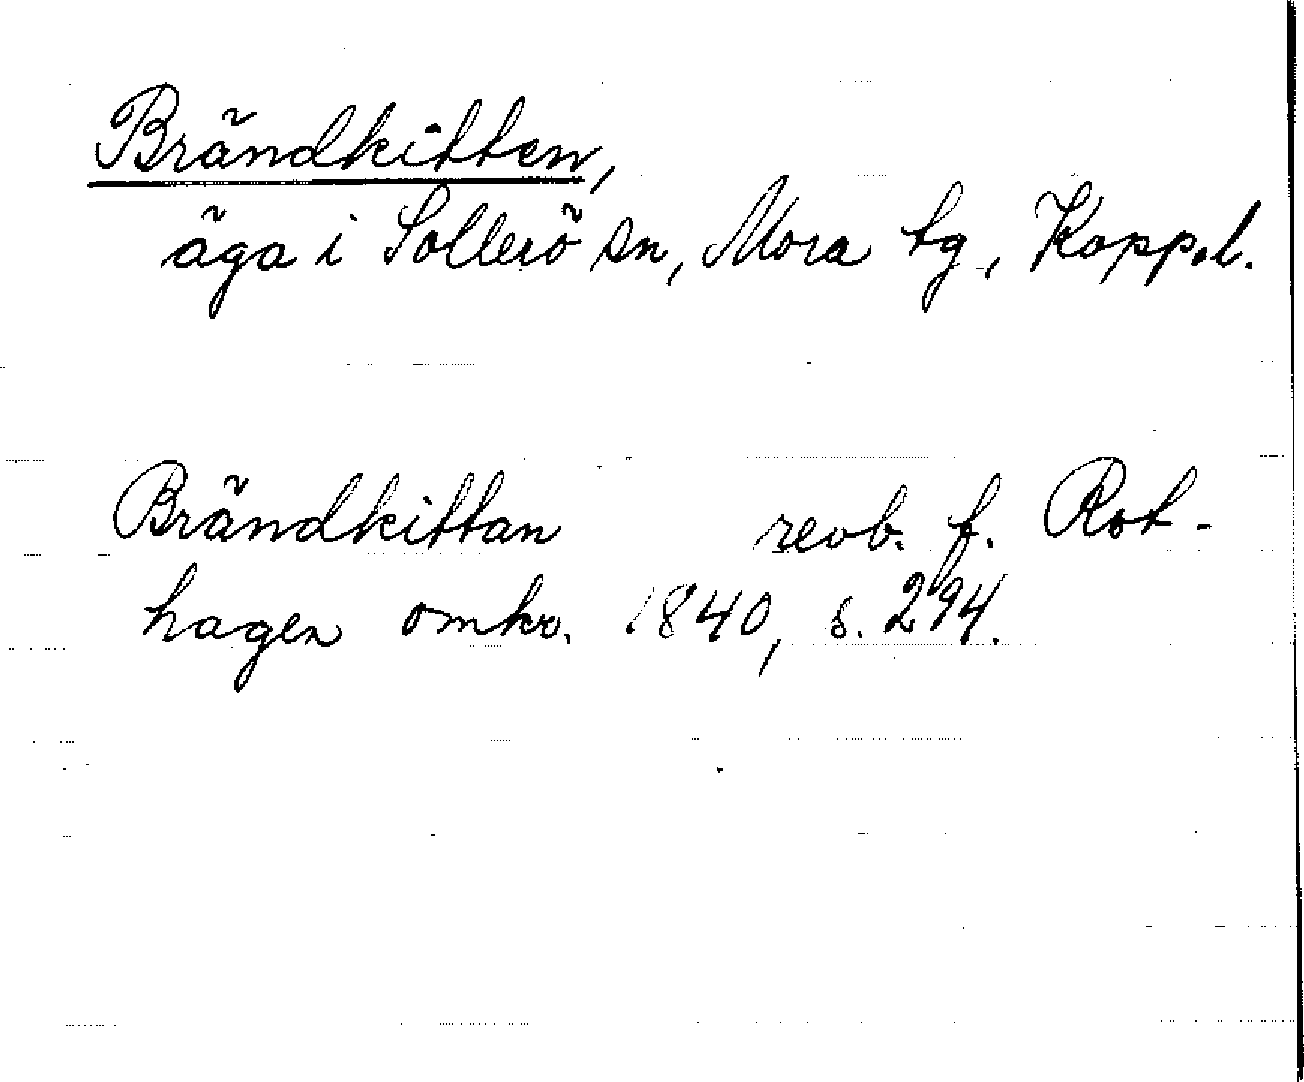 Brändkitten,
äga i Sollerö sn, Mora tg, Koppel.
Brändkittan revb. f. Rot-
hagen omkr. 1840, s. 294.